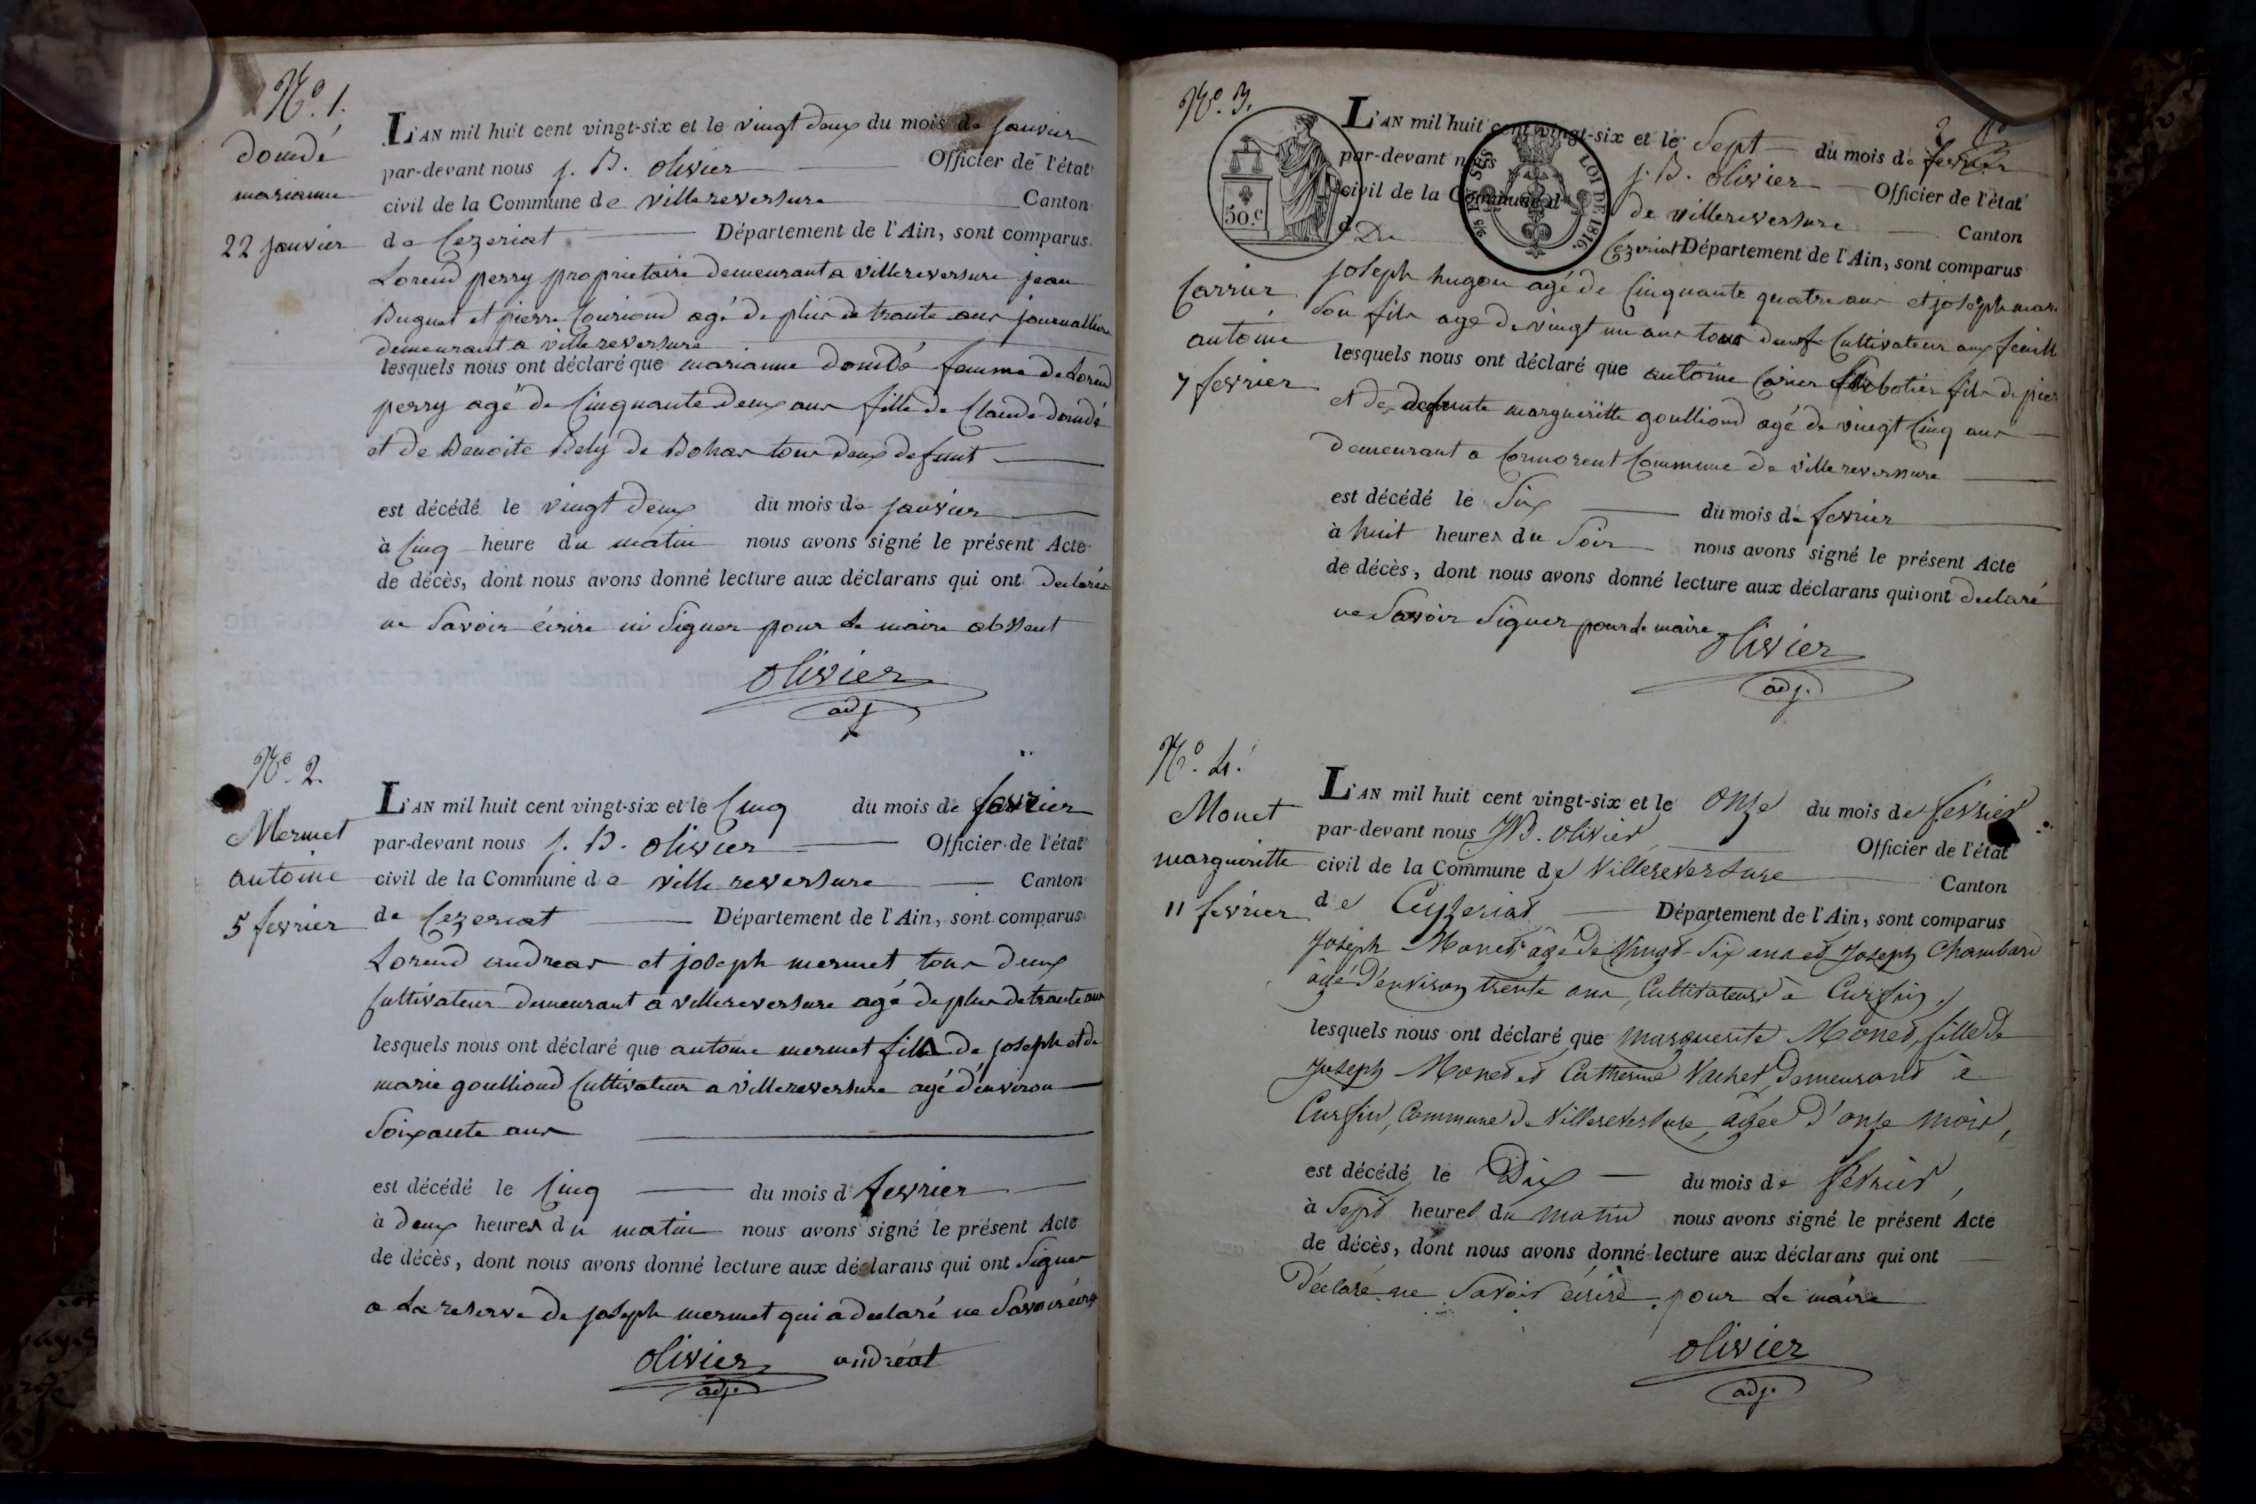 N.º 1.
domdé
marianne
22 janvier
L'AN mil huit cent vingt-six et le vingt deux du mois de janvier
par-devant nous j. B. olivier Officier de l'état
civil de la Commune de villereversure Canton
de Cezeriat Département de l'Ain, sont comparus
Lorend perry proprietaire demeurant a villereversure jean
Buguet et pierre Couriond agé de plus de trante ans journallier
demeurant a villereversure
lesquels nous ont déclaré que marianne domdé femme de Lorend
perry agé de Cinquante deux ans fille de Claude domdé
et de Benoite Bely de Bohas tous deux defunt
est décédé le vingt deux du mois de janvier
à Cinq heure du matin nous avons signé le présent Acte
de décès, dont nous avons donné lecture aux déclarans qui ont declarés
ne Savoir écrire ni Signer pour Le maire absent
olivier
adj
N.º 2.
Mermet
antoine
5 fevrier
L'AN mil huit cent vingt-six et le Cinq du mois de fevrier
par-devant nous j. B. olivier Officier de l'état
civil de la Commune de villereversure Canton
de Cezeriat Département de l'Ain, sont comparus
Lorend andreas et joseph mermet tous deux
Cultivateur demeurant a villereversure agé de plus de trante ans
lesquels nous ont déclaré que antoine mermet fils de joseph et de
marie goulliond Cultivateur a villereversure agé d'environ
Soixante ans
est décédé le Cinq du mois d fevrier
à deux heures du matin nous avons signé le présent Acte
de décès, dont nous avons donné lecture aux déclarans qui ont Signer
a La reserve de joseph mermet qui a declaré ne Savoir écrir
olivier andréat
adj.
N.º 3.
Carrier
antoine
7 fevrier
50.c
LOI DE 1816.
L'AN mil huit cent vingt-six et le Sept du mois de fevrier
par-devant nous j. B. olivier Officier de l'état
civil de la Commune d de villereversure Canton
d De Cezeriat Département de l'Ain, sont comparus
joseph hugon agé de Cinquante quatre ans et joseph marie
Son fils agé de vingt un ans tous deux Cultivateur aux feuill
lesquels nous ont déclaré que antoine Carier Sabotier fils de pier
et de defunte margueritte goulliond agé de vingt Cinq ans
demeurant a Cormorent Commune de villereversure
est décédé le Six du mois de fevrier
à huit heures du Soir nous avons signé le présent Acte
de décès, dont nous avons donné lecture aux déclarans qui ont declaré
ne Savoir Signer pour Le maire
olivier
adj.
N.º 4.
Monet
margueritte
11 fevrier
L'AN mil huit cent vingt-six et le onze du mois de fevrier
par-devant nous J B. olivier Officier de l'état
civil de la Commune de Villereversure Canton
de Ceyzeriat Département de l'Ain, sont comparus
Joseph Monet âgé de Vingt-Six ans et Joseph Chambard
âgé d'environ trente ans, Cultivateurs à Curfin,
lesquels nous ont déclaré que marguerite Monet, fille de
Joseph Monet et Catherine Vachet, demeurant à
Curfin, Commune de Villereversure, âgée d'onze mois,
est décédé le Dix du mois de fevrier,
à Sept heures du matin nous avons signé le présent Acte
de décès, dont nous avons donné lecture aux déclarans qui ont
déclaré ne Savoir écrire. pour Le maire
olivier
adj.